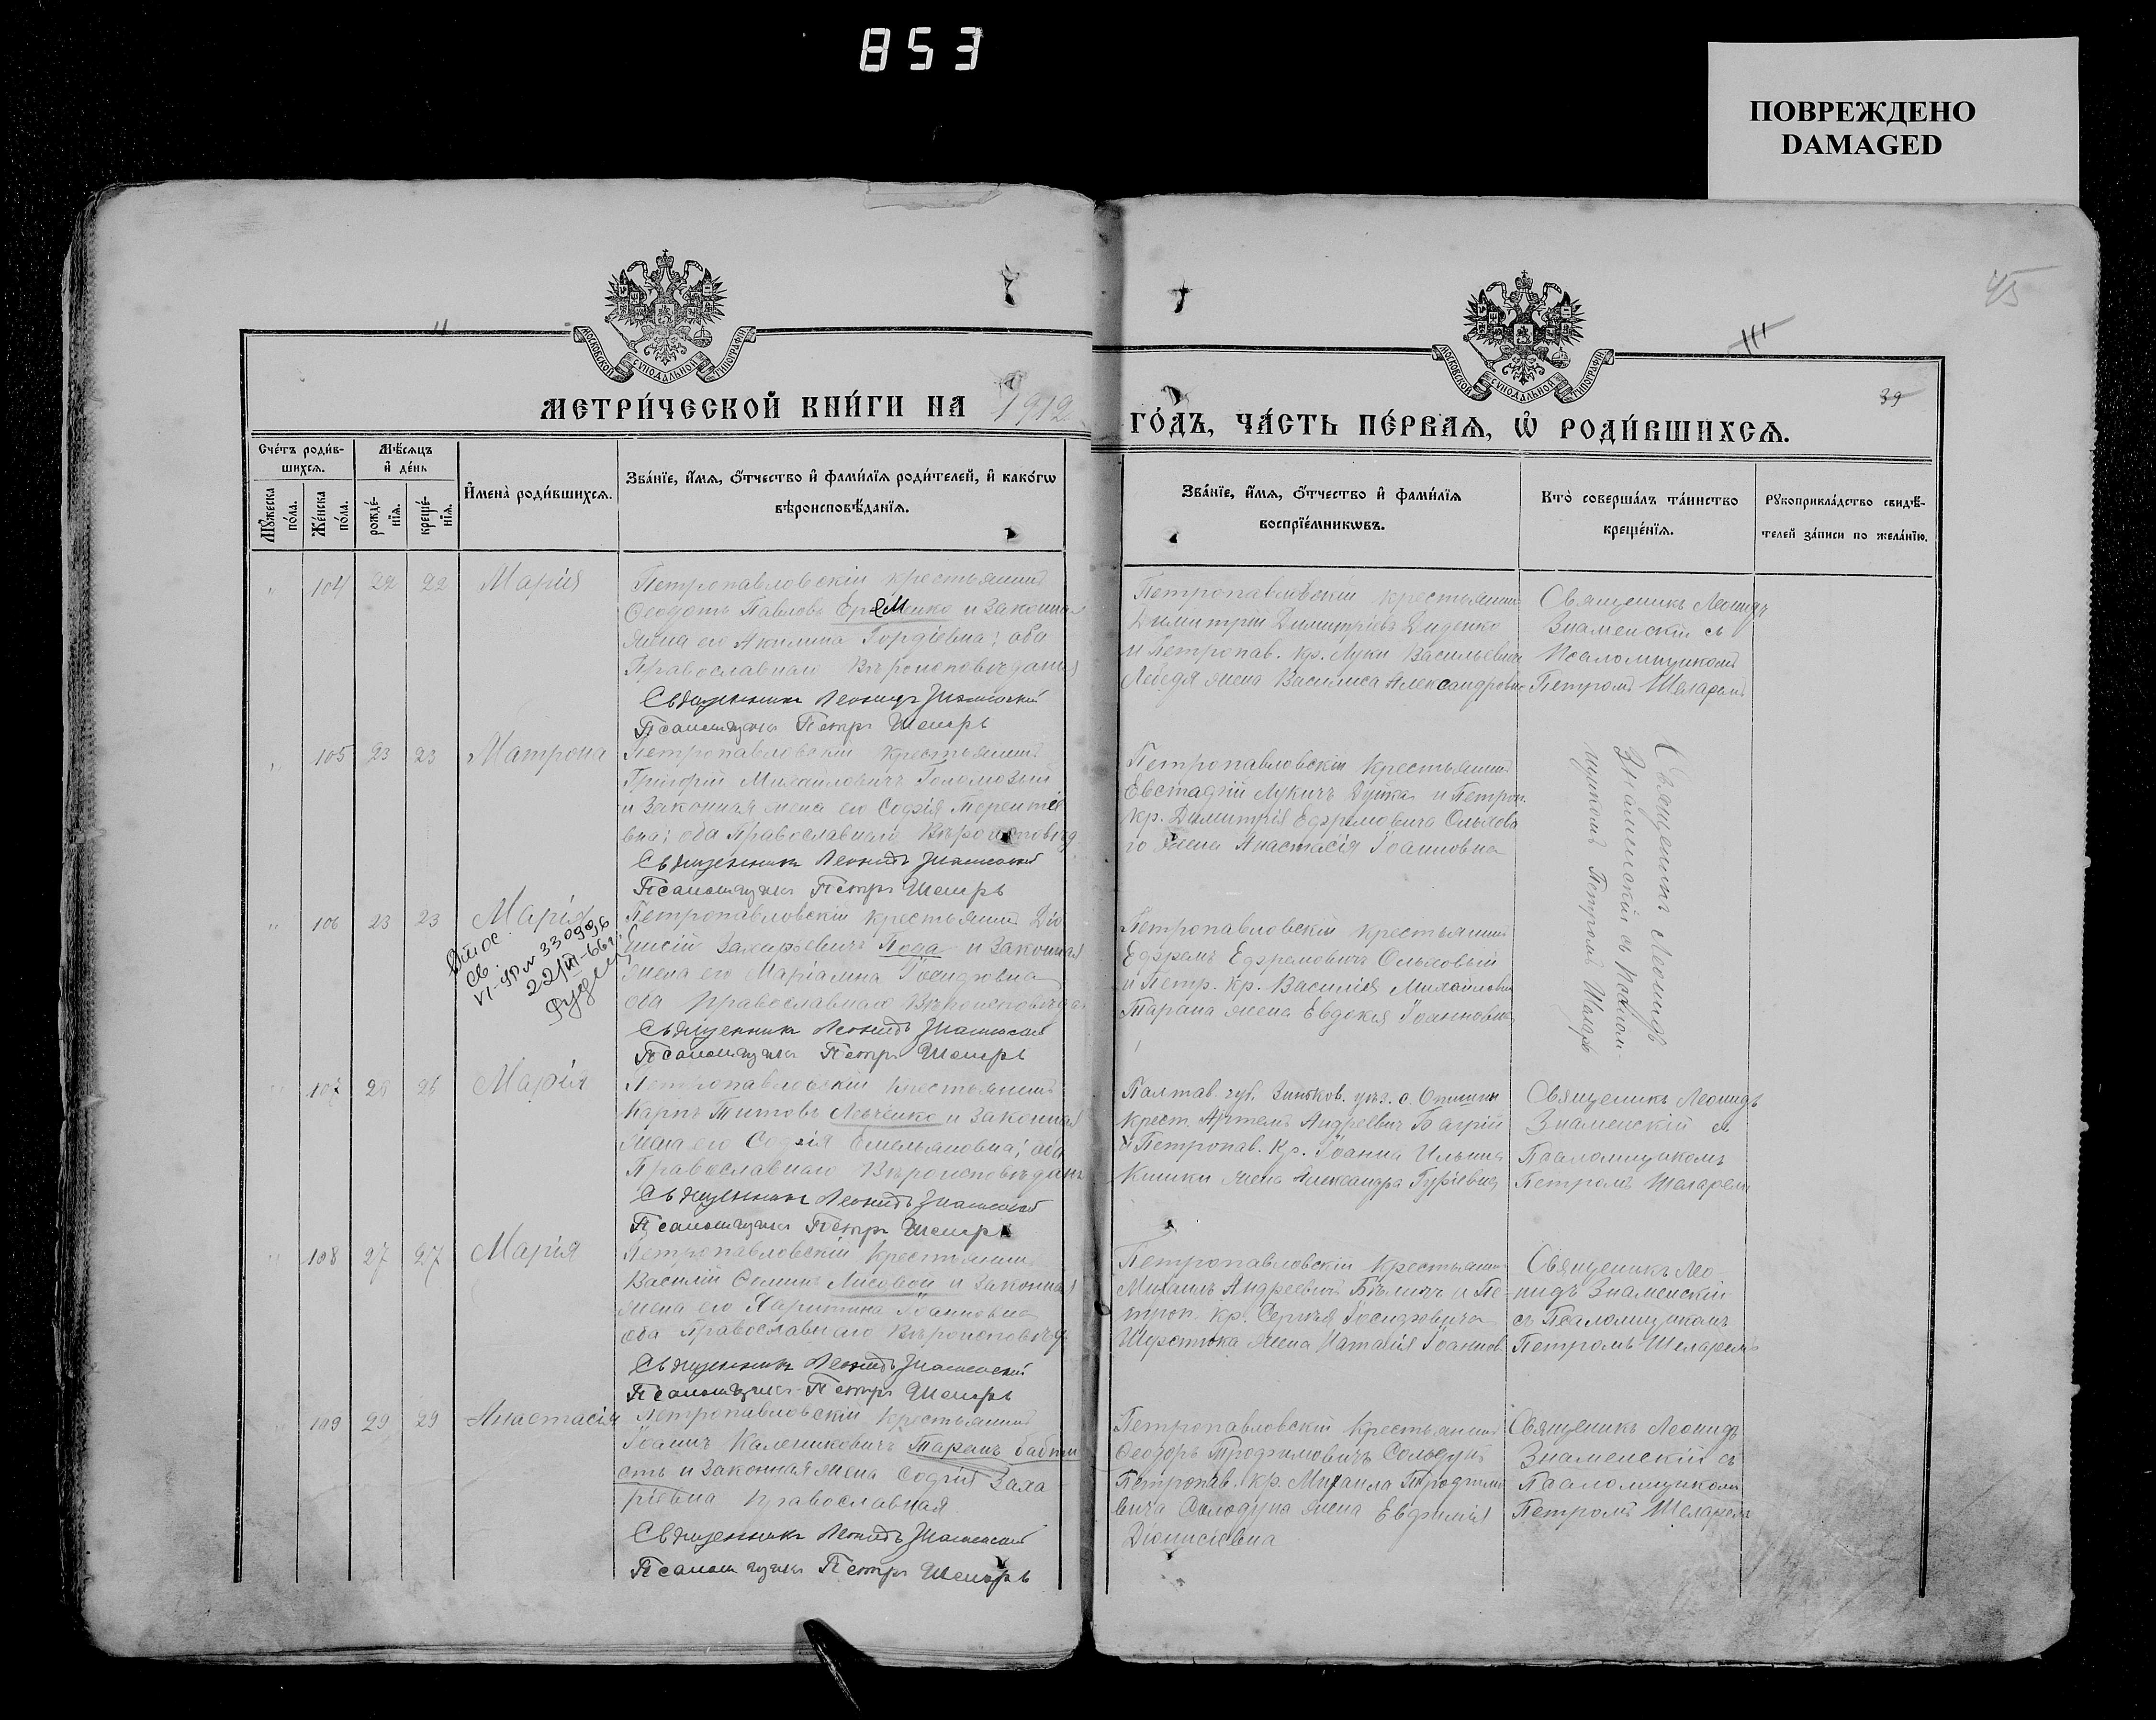 853
ПОВРЕЖДЕНО
DAMAGED
45
111
39
МОСКОВСКОЙ СѴНОДАЛЬНОЙ ТИПОГРАФІИ
МОСКОВСКОЙ СѴНОДАЛЬНОЙ ТИПОГРАФІИ
МЕТРИ́ЧЕСКОЙ КНИ́ГИ НА 1912
ГО́ДЪ, ЧА́СТЬ ПЕ́РВАѦ, Ѡ҆ РОДИ́ВШИХСѦ.
Сче́тъ роди́в-
шихсѧ.
Мѣ́сѧцъ
и҆ де́нь
Мꙋ́жеска
по́ла.
Же́нска
по́ла.
рожде́-
нїѧ.
креще́-
нїѧ.
И҆мена̀ роди́вшихсѧ.
Зва́нїе, и҆́мѧ, ѻ҆́тчество и҆ фами́лїѧ роди́телей, и҆ како́гѡ
вѣроисповѣ́данїѧ.
Зва́нїе, и҆́мѧ, ѻ҆́тчество и҆ фами́лїѧ
воспрїе́мникѡвъ.
Кто̀ соверша́лъ та́инство
креще́нїѧ.
Рꙋкоприкла́дство свидѣ́-
телей за́писи по жела́нїю.
104 22 22 Марія
Петропавловскій крестьянинъ
Ѳеодотъ Павловъ Еременко и законная
жена его Акилина Гордіевна; оба
Православнаго Вѣроисповѣданія
Священникъ Леонидъ Знаменскій
Псаломщикъ Петръ Шеларь
Петропавловскій крестьянинъ
Димитрій Димитріевъ Диденко
и Петропав. кр. Луки Васильевича
Лебедя жена Василиса Александровна
Священикъ Леонидъ
Знаменскій съ
Псаломщикомъ
Петромъ Шеларемъ
105 23 23 Матрона
Петропавловскій крестьянинъ
Григорій Михайловичъ Голомозый
и законная жена его Софія Терентіе
вна; оба Православнаго Вѣроисповѣд
Священникъ Леонидъ Знаменскій
Псаломщикъ Петръ Шеларь
Петропавловскій крестьянинъ
Евстафій Лукичъ Дуйка и Петроп.
кр. Димитрія Ефремовича Ольхова
го жена Анастасія Іоанновна
Священикъ Леонидъ
Знаменскій съ Псалом
щикомъ Петромъ Шеларь
106 23 23 Марія
Петропавловскій крестьянинъ Діо
нисій Захарьевичъ Попа и законная
жена его Маріамна Іосифовна
оба православнаго Вѣроисповѣдан
Священникъ Леонидъ Знаменскій
Псаломщикъ Петръ Шеларь
св.
VI-ЯР № 330996
22/III-66г.
Петропавловскій крестьянинъ
Ефремъ Ефремовичъ Ольховый
и Петр. кр. Василія Михайлови
Тарана жена Евдокія Іоанновна
107 26 26 Марія
Петропавловскій крестьянинъ
Карпъ Титовъ Левченко и законная
жена его Софія Емельяновна; оба
Православнаго Вѣроисповѣдан
Священникъ Леонидъ Знаменскій
Псаломщикъ Петръ Шеларь
Палтав. губ. Зиньков. уѣз. с. Опошни
крест. Артемъ Андреевич Багрій
и Петропав. кр. Іоанна Ильина
Кишки жена Александра Гуріевна
Священикъ Леонидъ
Знаменскій съ
Псаломщикомъ
Петромъ Шеларем
108 27 27 Марія
Петропавловскій крестьянин
Василій Семинъ Лисовой и законная
жена его Харитина Іоанновна
оба Православнаго Вѣроисповѣд
Священникъ Леонидъ Знаменскій
Псаломщикъ Петръ Шеларь
Петропавловскій крестьянин
Михаилъ Андреевичъ Бѣличъ и Пе
троп. кр. Сергѣя Іосифовича
Шерстюка жена Наталія Іоаннов.
Священикъ Лео
нидъ Знаменскій
съ Псаломщикомъ
Петромъ Шеларемъ
109 29 29 Анастасія
Петропавловскій крестьянинъ
Іоаннъ Калениковичъ Таранъ бабти
стъ и законная жена Софія Заха
ріевна Православная
Священникъ Леонидъ Знаменскій
Псаломщикъ Петръ Шеларь
Петропавловскій крестьянинъ
Ѳеодоръ Трофимовичъ Солодунъ
Петропав. кр. Михаила Трофимо
вича Солодуна жена Евфимія
Діонисіевна
Священикъ Леонидъ
Знаменскій съ
Псаломщиком
Петромъ Шеларем